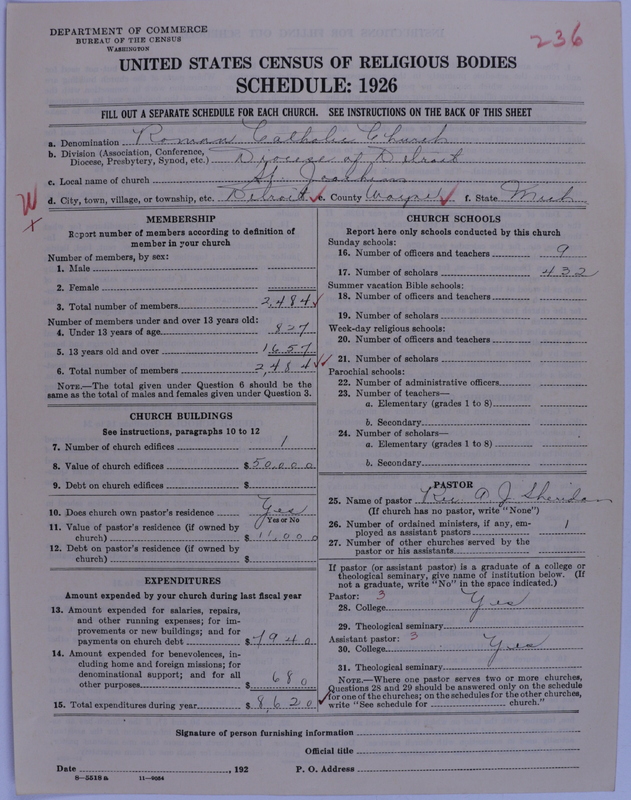 DEPARTMENT OF COMMERCE
BUREAU OF THE CENSUS
WASHINGTON
236
UNITED STATES CENSUS OF RELIGIOUS BODIES
SCHEDULE: 1926
FILL OUT A SEPARATE SCHEDULE FOR EACH CHURCH. SEE INSTRUCTIONS ON THE BACK OF THIS SHEET
a. Denomination Roman Catholic Church
b. Division (Association, Conference, Diocese, Presbytery, Synod, etc.) Diocese of Detroit
c. Local name of church St. Joachim
d. City, town, village, or township, etc. Detroit e. County Wayne f. State Mich
W
x
MEMBERSHIP
Report number of members according to definition of
member in your church
Number of members, by sex:
1. Male
2. Female
3. Total number of members 2,484
Number of members under and over 13 years old:
4. Under 13 years of age 827
5. 13 years old and over 1657
6. Total number of members 2,484
NOTE.—The total given under Question 6 should be the
same as the total of males and females given under Question 3.
CHURCH BUILDINGS
See instructions, paragraphs 10 to 12
7. Number of church edifices 1
8. Value of church edifices $50,000
9. Debt on church edifices $
10. Does church own pastor's residence Yes
Yes or No
11. Value of pastor's residence (if owned by
church) $11,000
12. Debt on pastor's residence (if owned by
church) $
EXPENDITURES
Amount expended by your church during last fiscal year
13. Amount expended for salaries, repairs,
and other running expenses; for im-
provements or new buildings; and for
payments on church debt $7940
14. Amount expended for benevolences, in-
cluding home and foreign missions; for
denominational support; and for all
other purposes $680
15. Total expenditures during year $8,620
CHURCH SCHOOLS
Report here only schools conducted by this church
Sunday schools:
16. Number of officers and teachers 9
17. Number of scholars 432
Summer vacation Bible schools:
18. Number of officers and teachers
19. Number of scholars
Week-day religious schools:
20. Number of officers and teachers
21. Number of scholars
Parochial schools:
22. Number of administrative officers
23. Number of teachers—
a. Elementary (grades 1 to 8)
b. Secondary
24. Number of scholars—
a. Elementary (grades 1 to 8)
b. Secondary
PASTOR
25. Name of pastor Rev A J Sheridan
(If church has no pastor, write "None")
26. Number of ordained ministers, if any, em-
ployed as assistant pastors 1
27. Number of other churches served by the
pastor or his assistants
If pastor (or assistant pastor) is a graduate of a college or
theological seminary, give name of institution below. (If
not a graduate, write "No" in the space indicated.)
Pastor: 3
28. College Yes
29. Theological seminary
Assistant pastor: 3
30. College Yes
31. Theological seminary
NOTE.—Where one pastor serves two or more churches,
Questions 28 and 29 should be answered only on the schedule
for one of the churches; on the schedules for the other churches,
write "See schedule for church."
Signature of person furnishing information
Official title
Date , 192 P. O. Address
8—5518a 11—9034